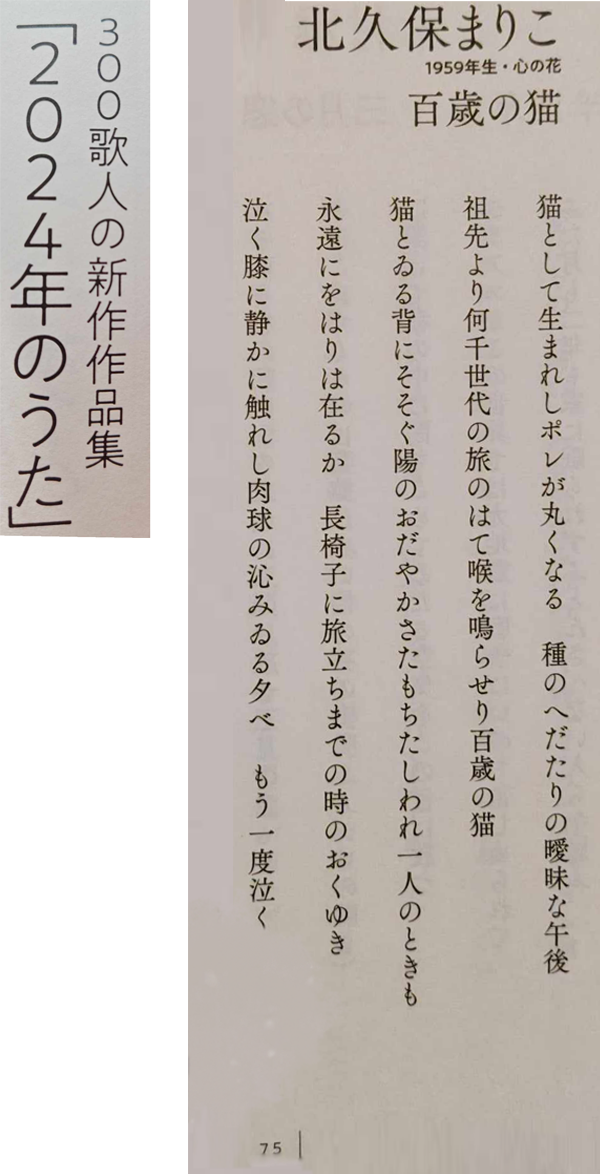 300歌人の新作作品集
「2024年のうた」
北久保まりこ
1959年生・心の花
百歳の猫
猫として生まれしポレが丸くなる　種のへだたりの曖昧な午後
祖先より何千世代の旅のはて喉を鳴らせり百歳の猫
猫とゐる背にそそぐ陽のおだやかさたもちたしわれ一人のときも
永遠にをはりは在るか　長椅子に旅立ちまでの時のおくゆき
泣く膝に静かに触れし肉球の沁みゐる夕べ　もう一度泣く
75